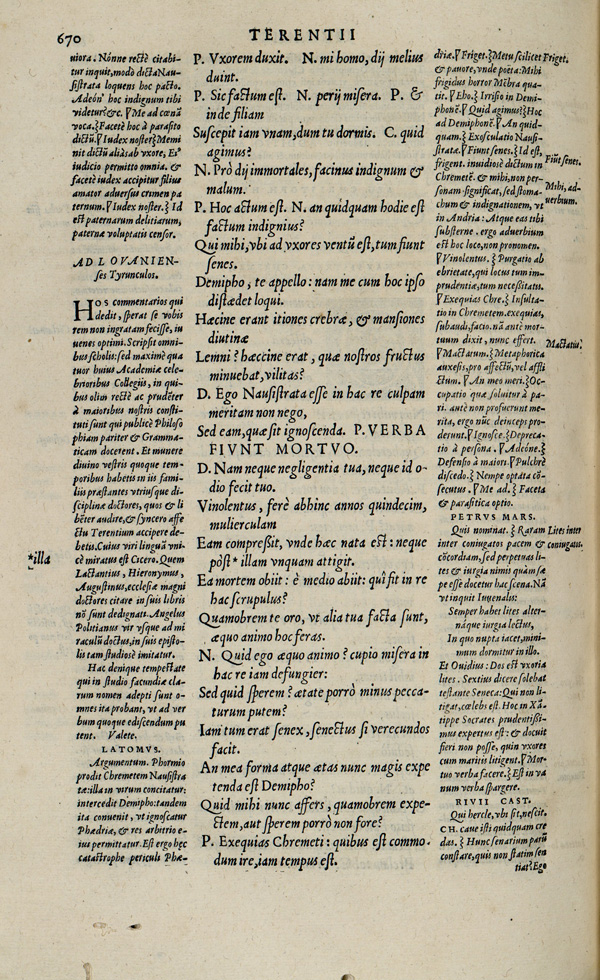 670
TERENTII
uiora. Nónne rectè citabi-
tur inquit, modò dicta Nau-
sistrata loquens hoc pacto.
Adeón' hoc indignum tibi
videtur? &c. ⁋Me ad cœnā
voca. ⁆Facetè hoc à parasito
dictū. ⁋Iudex noster⁆Memi
nit dictū aliàs ab vxore, Ei⁹
iudicio permitto omnia. &
facetè iudex accipitur filius
amator aduersus crimen pa
ternum. ⁋Iudex noster. ⁆ Id
est paternarum delitiarum,
paternæ voluptatis censor.
AD LOVANIEN-
ses Tyrunculos.
HOS commentarios qui
dedit, sperat se vobis
rem non ingratam fecisse, iu
uenes optimi. Scripsit omni-
bus scholis: sed maximè qua
tuor huius Academiæ cele-
brioribus Collegiis, in qui-
bus olim rectè ac prudēter
à maioribus nostris consti-
tuti sunt qui publicè Philoso
phiam pariter & Gramma-
ticam docerent. Et munere
diuino vestris quoque tem-
poribus habetis in iis fami-
liis præstantes vtriusque di-
sciplinæ doctores, quos & li
bēter audire, & syncero affe
ctu Terentium accipere de-
betis. Cuius viri linguā vni-
cè miratus est Cicero. Quem
Lactantius, Hieronymus,
Augustinus, ecclesiæ magni
doctores citare in suis libris
nō sunt dedignati. Angelus
Politianus vir vsque ad mi
raculū doctus, in suis episto-
lis tam studiosè imitatur.
Hac denique tempestate
qui in studio facundiæ cla-
rum nomen adepti sunt o-
mnes ita probant, vt ad ver
bum quoque ediscendum pu
tent. Valete.
LATOMVS.
Argumentum. Phormio
prodit Chremetem Nausistra
tæ: illa in virum concitatur:
intercedit Demipho: tandem
ita conuenit, vt ignoscatur
Phædriæ, & res arbitrio e-
ius permittatur. Est ergo hęc
catastrophe periculi Phæ-
*illa
P. Vxorem duxit. N. mi homo, dij melius
duint.
P. Sic factum est. N. perij misera. P. &
inde filiam
Suscepit iam vnam, dum tu dormis. C. quid
agimus?
N. Prò dij immortales, facinus indignum &
malum.
P. Hoc actum est. N. an quidquam hodie est
factum indignius?
Qui mihi, vbi ad vxores ventū est, tum fiunt
senes.
Demipho, te appello: nam me cum hoc ipso
distædet loqui.
Hæcine erant itiones crebræ, & mansiones
diutinæ
Lemni? hæccine erat, quæ nostros fructus
minuebat, vilitas?
D. Ego Nausistrata esse in hac re culpam
meritam non nego,
Sed eam, quæ sit ignoscenda. P. VERBA
FIVNT MORTVO.
D. Nam neque negligentia tua, neque id o-
dio fecit tuo.
Vinolentus, ferè abhinc annos quindecim,
mulierculam
Eam compreßit, vnde hæc nata est: neque
pòst * illam vnquam attigit.
Ea mortem obiit: è medio abiit: quî fit in re
hac scrupulus?
Quamobrem te oro, vt alia tua facta sunt,
æquo animo hoc feras.
N. Quid ego æquo animo? cupio misera in
hac re iam defungier:
Sed quid sperem? ætate porrò minus pecca-
turum putem?
Iam tum erat senex, senectus si verecundos
facit.
An mea forma atque ætas nunc magis expe
tenda est Demipho?
Quid mihi nunc affers, quamobrem expe-
ctem, aut sperem porrò non fore?
P. Exequias Chremeti: quibus est commo-
dum ire, iam tempus est.
driæ. ⁋Friget. ⁆Metu scilicet
& pauore, vnde poëta: Mihi
frigidus horror Mēbra qua-
tit. ⁋Eho. ⁆ Irrisio in Demi-
phonē. ⁋Quid agimus?⁆Hoc
ad Demiphonē. ⁋An quid-
quam. ⁆Exosculatio Nausi-
stratæ. ⁋Fiunt senes. ⁆Id est,
frigent. inuidiosè dictum in
Chremetē. & mihi, non per-
sonam significat, sed stoma-
chum & indignationem, vt
in Andria: Atque eas tibi
substerne. ergo aduerbium
est hoc loco, non pronomen.
⁋Vinolentus. ⁆ Purgatio ab
ebrietate, qui locus tum im-
prudentiæ, tum necessitatis.
⁋Exequias Chre. ⁆ Insulta-
tio in Chremetem. exequias,
subaudi, facio. nā antè mor-
tuum dixit, nunc effert.
⁋Mactatum. ⁆Metaphorica
auxesis, pro affectū, vel affli
ctum. ⁋ An meo meri. ⁆Oc-
cupatio quæ soluitur à pa-
ri. antè non profuerunt me-
rita, ergo nūc deinceps pro-
derunt. ⁋Ignosce. ⁆Depreca-
tio à persona. ⁋Adeóne. ⁆
Defensio à maiori. ⁋Pulchrè
discedo. ⁆ Nempe optata cō-
secutus. ⁋Me ad. ⁆ Faceta
& parasitica optio.
PETRVS MARS.
Quis nominat. ⁆ Raram
inter coniugatos pacem &
cōcordiam, sed perpetuas li-
tes & iurgia nimis quàm sæ
pe esse docet hæc scena. Nā
vt inquit Iuuenalis:
Semper habet lites alter-
náque iurgia lectus,
In quo nupta iacet, mini-
mum dormitur in illo.
Et Ouidius: Dos est vxoria
lites. Sextius dicere solebat
testante Seneca: Qui non li-
tigat, cælebs est. Hoc in Xā-
tippe Socrates prudentißi-
mus expertus est: & docuit
fieri non posse, quin vxores
cum maritis litigent. ⁋Mor-
tuo verba facere. ⁆Est in va
num verba spargere.
RIVII CAST.
Qui hercle, vbi sit, nescit.
CH. caue isti quidquam cre
das. ⁆ Hunc senarium parū
constare, quis non statim sen
tiat? Ego
Friget.
Fiūt senes.
Mihi, ad-
uerbium.
Mactatū.
Lites inter
coniugatos.